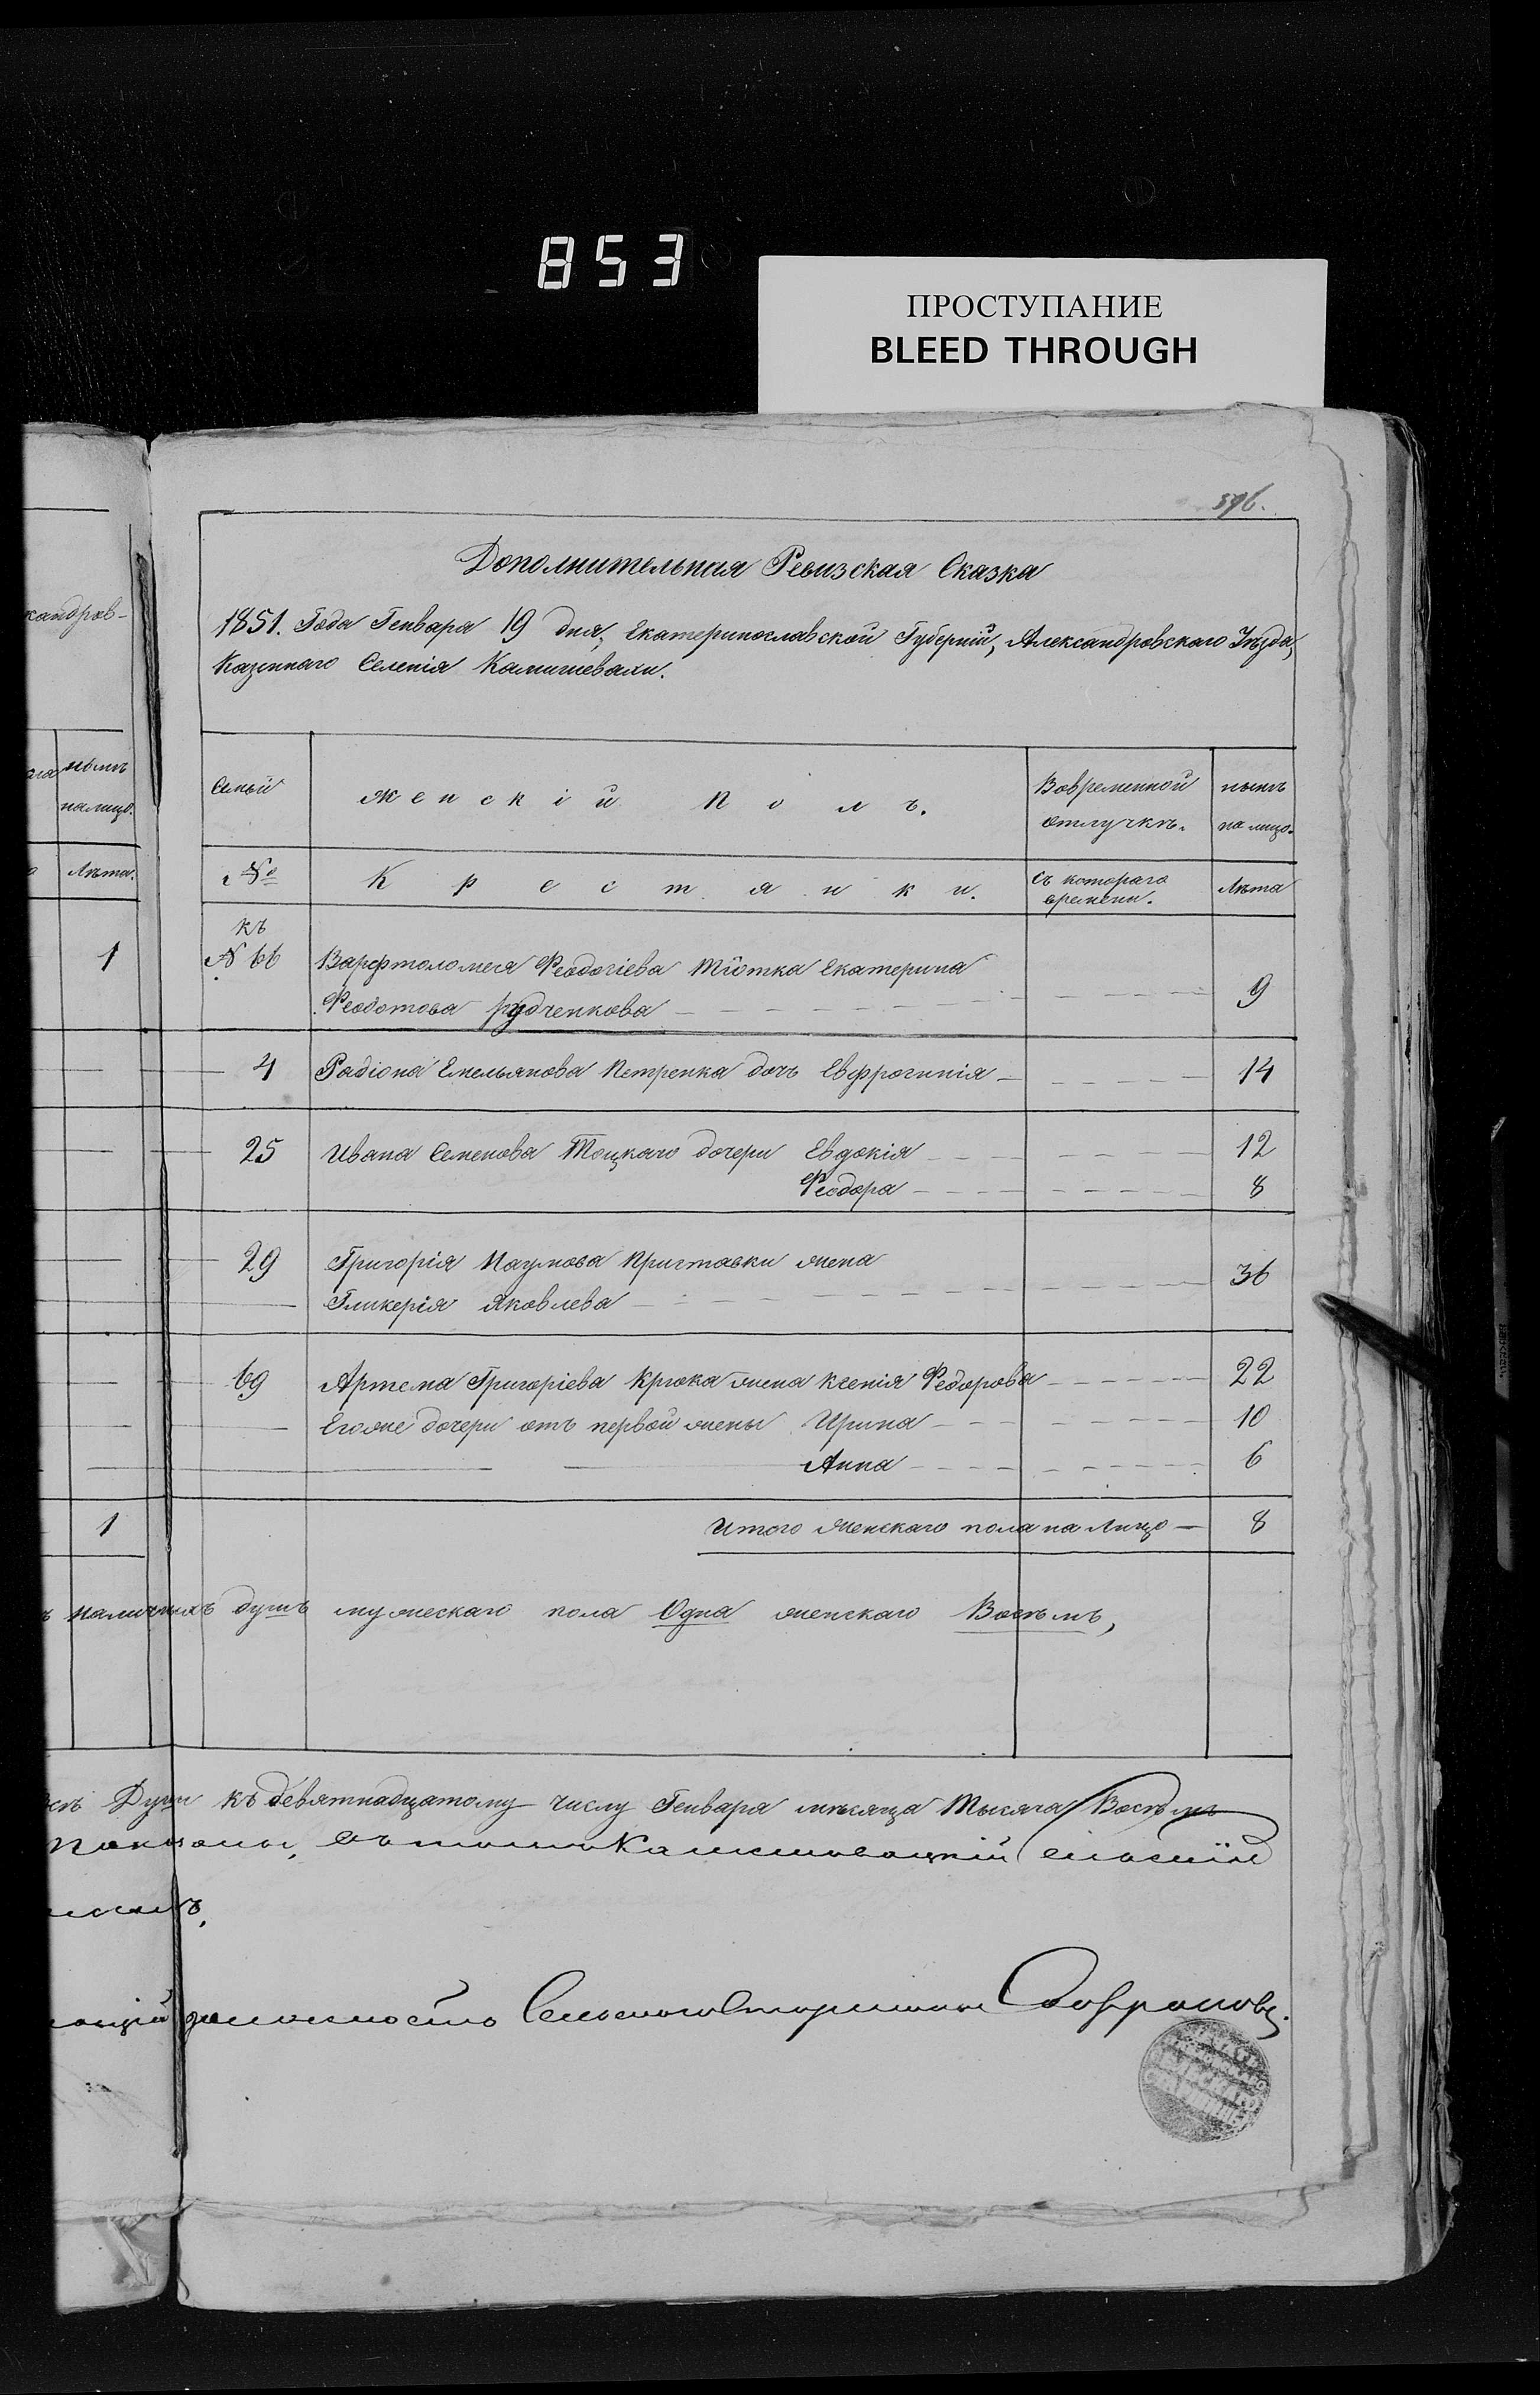 853
ПРОСТУПАНИЕ
BLEED THROUGH
396.
Дополнительная Ревизская Сказка
1851. Года Генваря 19 дня, Екатеринославской Губерніи, Александровскаго Уѣзда,
Казеннаго Селенія Камишевахи.
кандров-
нынѣ
налицо.
Лѣта.
1
Семьи
Женскій Полъ.
Вовременной
отлучкѣ.
нынѣ
на лицо.
№
Крестянки.
Съ котораго
времени.
Лѣта
къ
N 66 Варфтоломея Феодосіева Тіотка Екатерина
Феодотова Рудченкова 9
4 Радіона Емельянова Петренка дочь Евфросинія 14
25 Ивана Семенова Тоцкаго дочери Евдокія 12
Феодора 8
29 Григорія Наумова Приставки жена
Гликерія Яковлева 36
69 Артема Григоріева Крюка жена Ксенія Федорова 22
Егоже дочери отъ первой жены Ирина 10
Анна 6
1 Итого женскаго пола на лицо 8
наличныхъ душъ мужескаго пола Одна женскаго Восѣмъ,
Душ къ девятнадцатому числу Генваря мѣсяца Тысяча Восѣмъ
должность Сельскаго Старшины Софроновъ.